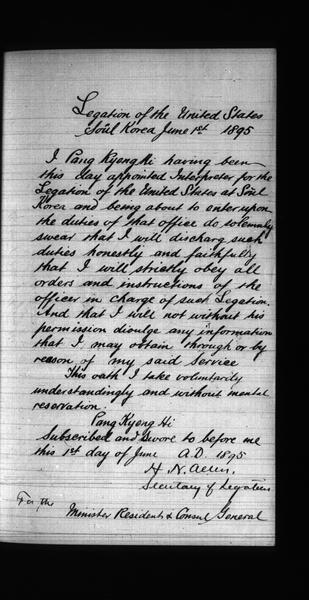 Legation of the United States
Soûl Korea June 1st 1895
I Pang Kyeng Hi having been
this day appointed Interpreter for the
Legation of the United States at Soûl
Korea and being about to enter upon
the duties of that office do solemnly
swear that I will discharg such
duties honestly and faithfully
that I will strictly obey all
orders and instructions of the
officer in charge of such Legation.
And that I will not without his
permission divulge any information
that I may obtain through or by
reason of my said service
This oath I take voluntarily
understandingly and without mental
reservation.
Pang Kyeng Hi
Subscribed and Swore to before me
this 1st day of June A.D. 1895
H. N. Allen.
Secretary of Legation
For the
Minister Resident & Consul General